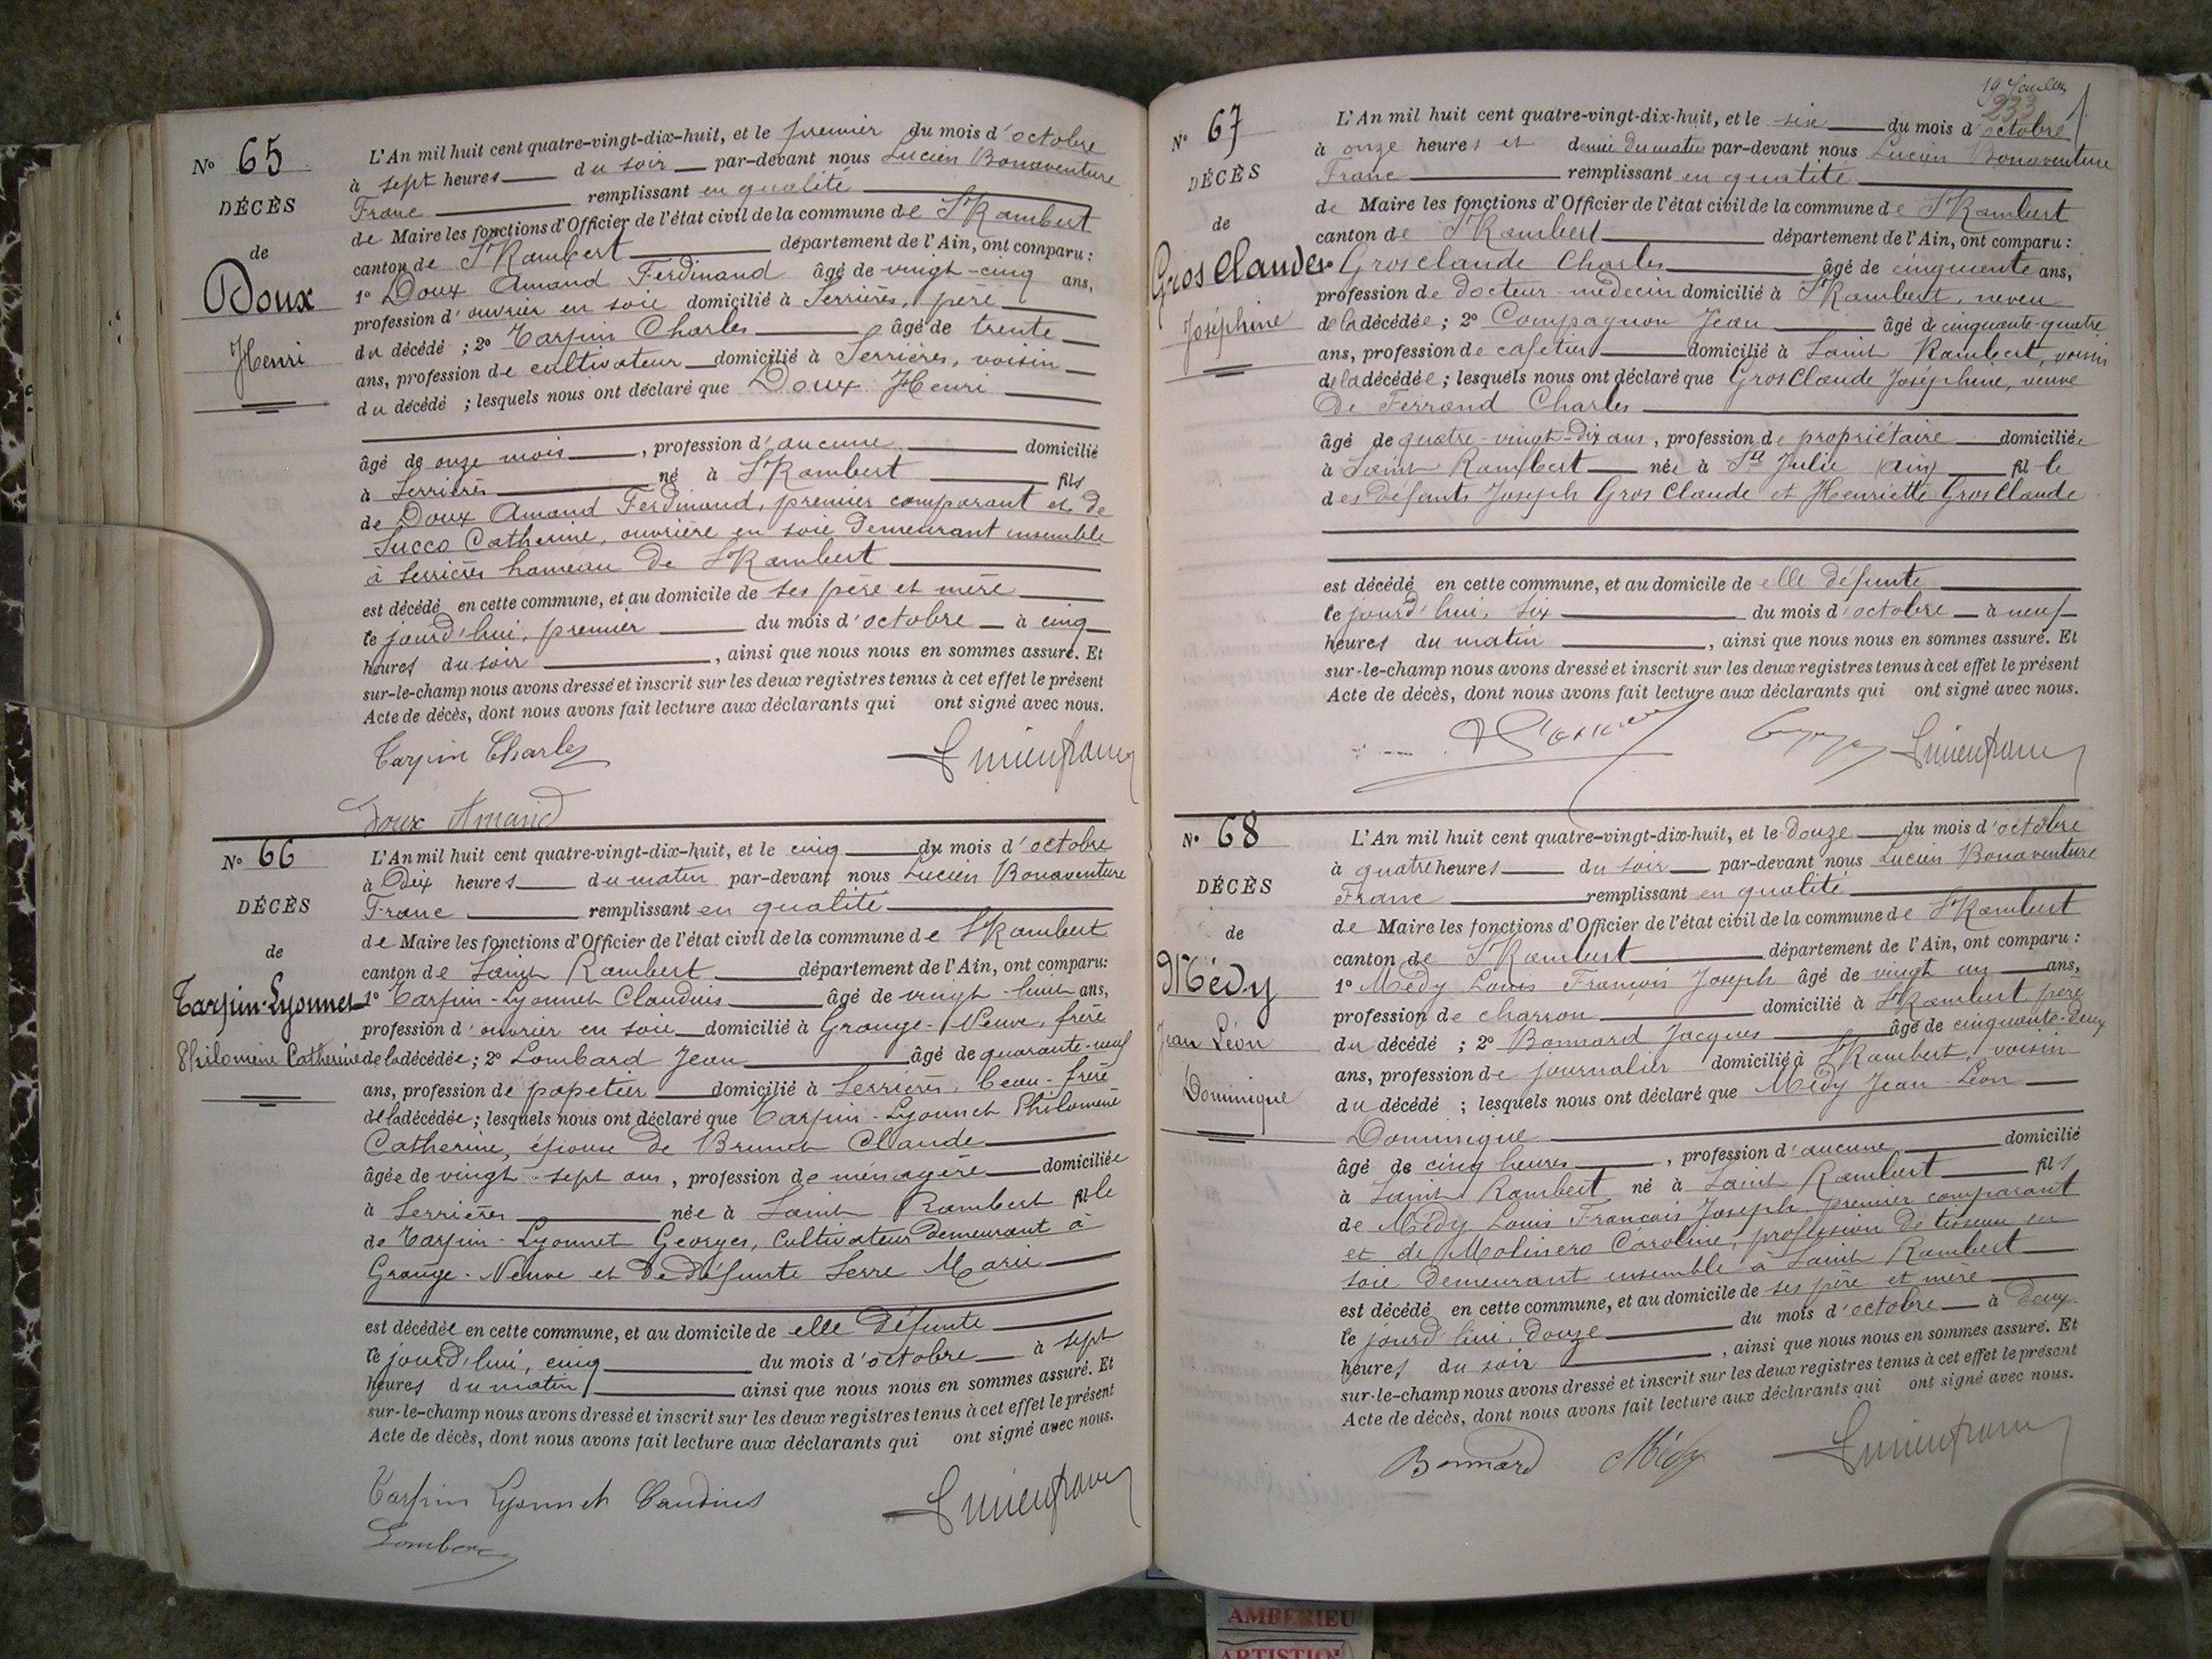 N° 65
DÉCÈS
de
Doux
Henri
L'An mil huit cent quatre-vingt-dix-huit, et le premier du mois d'octobre
à sept heures du soir par-devant nous Lucien Bonaventure
Franc remplissant en qualité
de Maire les fonctions d'Officier de l'état civil de la commune de St Rambert
canton de St Rambert département de l'Ain, ont comparu:
1° Doux Amand Ferdinand âgé de vingt-cinq ans,
profession d'ouvrier en soie domicilié à Serrières, père
du décédé ; 2° Tarpin Charles âgé de trente
ans, profession de cultivateur domicilié à Serrières, voisin
du décédé ; lesquels nous ont déclaré que Doux Henri
âgé de onze mois , profession d'aucune domicilié
à Serrières né à St Rambert fils
de Doux Amand Ferdinand, premier comparant et de
Succo Catherine, ouvrière en soie demeurant ensemble
à Serrières hameau de St Rambert
est décédé en cette commune, et au domicile de ses père et mère
le jourd'hui, premier du mois d'octobre à cinq
heures du soir , ainsi que nous nous en sommes assuré. Et
sur-le-champ nous avons dressé et inscrit sur les deux registres tenus à cet effet le présent
Acte de décès, dont nous avons fait lecture aux déclarants qui ont signé avec nous.
Tarpin Charles
Doux Amand
N° 66
DÉCÈS
de
Tarpin-Lyonnet
Philomène Catherine
L'An mil huit cent quatre-vingt-dix-huit, et le cinq du mois d'octobre
à Dix heures du matin par-devant nous Lucien Bonaventure
Franc remplissant en qualité
de Maire les fonctions d'Officier de l'état civil de la commune de St Rambert
canton de Saint Rambert département de l'Ain, ont comparu:
1° Tarpin-Lyonnet Claudius âgé de vingt-huit ans,
profession d'ouvrier en soie domicilié à Grange-Neuve, frère
de la décédée; 2° Lombard Jean âgé de quarante-neuf
ans, profession de papetier domicilié à Serrières, beau-frère
de la décédée; lesquels nous ont déclaré que Tarpin-Lyonnet Philomène
Catherine, épouse de Brunet Claude
âgée de vingt-sept ans, profession de ménagère domiciliée
à Serrières née à Saint Rambert fille
de Tarpin-Lyonnet Georges, Cultivateur demeurant à
Grange-Neuve et de défunte Serre Marie
est décédée en cette commune, et au domicile de elle défunte
le jourd'hui, cinq du mois d'octobre à sept
heures du matin ainsi que nous nous en sommes assuré. Et
sur-le-champ nous avons dressé et inscrit sur les deux registres tenus à cet effet le présent
Acte de décès, dont nous avons fait lecture aux déclarants qui ont signé avec nous.
Tarpin Lyonnet Caudius
Lombard
233
N° 67
DÉCÈS
de
GrosClaude
Joséphine
L'An mil huit cent quatre-vingt-dix-huit, et le six du mois d'octobre
à onze heures et demie du matin par-devant nous Lucien Bonaventure
Franc remplissant en qualité
de Maire les fonctions d'Officier de l'état civil de la commune de St Rambert
canton de St Rambert département de l'Ain, ont comparu:
1° Grosclaude Charles âgé de cinquante ans,
profession de docteur-médecin domicilié à St Rambert, neveu
de la décédée; 2° Compagnon Jean âgé de cinquante-quatre
ans, profession de cafetier domicilié à Saint Rambert, voisin
de la décédée; lesquels nous ont déclaré que GrosClaude Joséphine, veuve
De Ferrand Charles
âgé de quatre-vingt-dix ans, profession de propriétaire domiciliée
à Saint Rambert née à Ste Julie (ain) fille
des défunts Joseph Gros Claude et Henriette GrosClaude
est décédé en cette commune, et au domicile de elle défunte
le jourd'hui, six du mois d'octobre à neuf
heures du matin , ainsi que nous nous en sommes assuré. Et
sur-le-champ nous avons dressé et inscrit sur les deux registres tenus à cet effet le présent
Acte de décès, dont nous avons fait lecture aux déclarants qui ont signé avec nous.
N° 68
DÉCÈS
de
Médy
Jean Léon
Dominique
L'An mil huit cent quatre-vingt-dix-huit, et le douze du mois d'octobre
à quatre heures du soir par-devant nous Lucien Bonaventure
Franc remplissant en qualité
de Maire les fonctions d'Officier de l'état civil de la commune de St Rambert
canton de St Rambert département de l'Ain, ont comparu:
1° Médy Louis François Joseph âgé de vingt un ans,
profession de charron domicilié à St Rambert père
du décédé ; 2° Bonnard Jacques âgé de cinquante-deux
ans, profession de journalier domicilié à St Rambert, voisin
du décédé ; lesquels nous ont déclaré que Médy Jean Léon
Dominique
âgé de cinq heures , profession d'aucune domicilié
à Saint Rambert né à Saint Rambert fils
de Médy Louis François Joseph, premier comparant
et de Molinero Caroline, profession de tisseuse en
soie demeurant ensemble à Saint Rambert
est décédé en cette commune, et au domicile de ses père et mère
le jourd'hui, douze du mois d'octobre à deux
heures du soir , ainsi que nous nous en sommes assuré. Et
sur-le-champ nous avons dressé et inscrit sur les deux registres tenus à cet effet le présent
Acte de décès, dont nous avons fait lecture aux déclarants qui ont signé avec nous.
Bonnard Médy
AMBERIEU